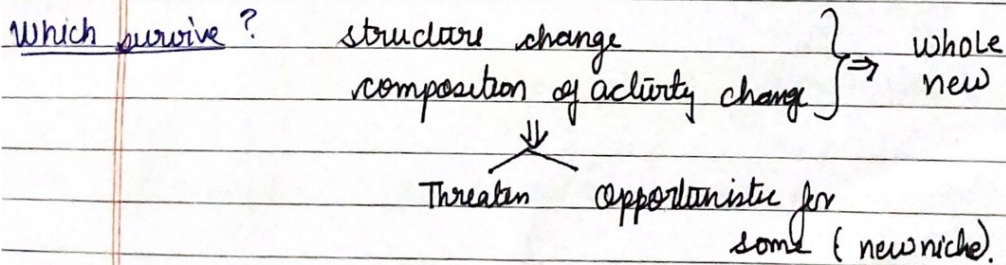 Which survive ? structure change } ⇒ whole
composition of activity change new
⇓
Threaten opportunistic for
some ( new niche).